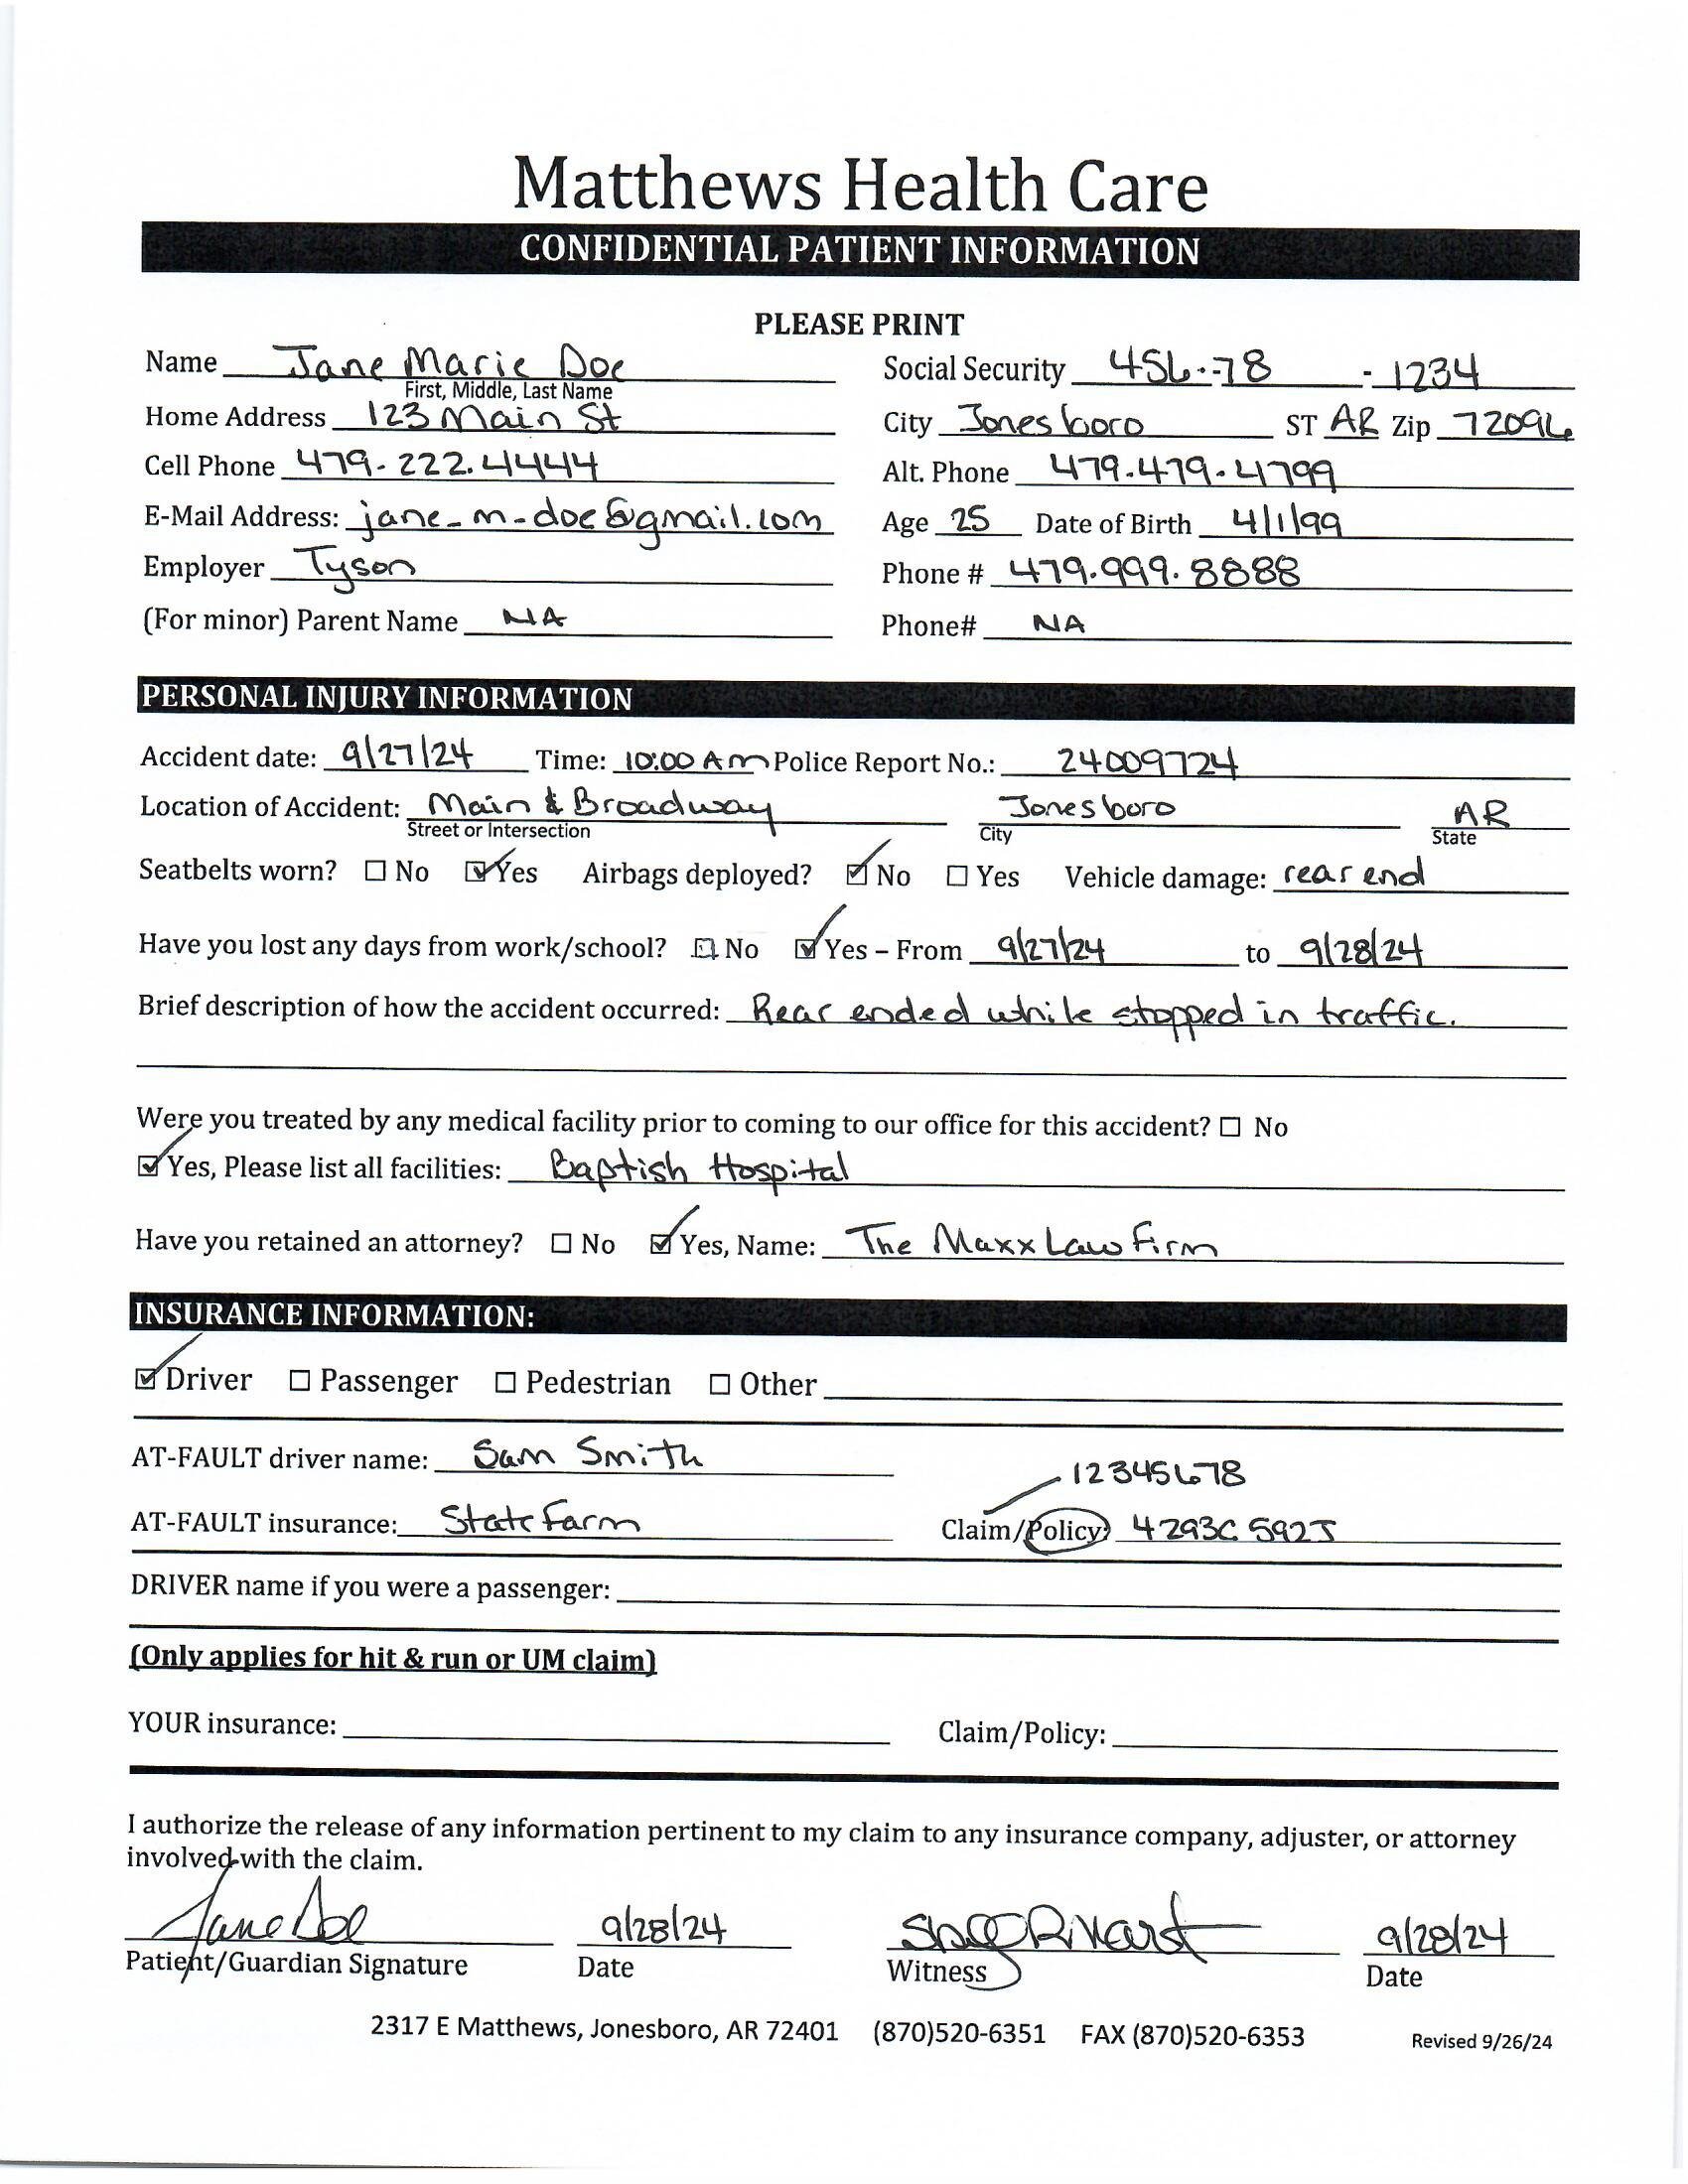 Matthews Health Care
CONFIDENTIAL PATIENT INFORMATION
PLEASE PRINT
Name Jane Marie Doe Social Security 456-78 - 1234
First, Middle, Last Name
Home Address 123 Main St City Jonesboro ST AR Zip 72096
Cell Phone 479-222.4444 Alt. Phone 479.479-4799
E-Mail Address: jane-m-doe@gmail.com Age 25 Date of Birth 4/1/99
Employer Tyson Phone # 479.999.8888
(For minor) Parent Name NA Phone# NA
PERSONAL INJURY INFORMATION
Accident date: 9/27/24 Time: 10:00 AM Police Report No.: 24009724
Location of Accident: Main & Broadway Jonesboro AR
Street or Intersection City State
Seatbelts worn? ☐ No ☑ Yes Airbags deployed? ☑ No ☐ Yes Vehicle damage: rear end
Have you lost any days from work/school? ☐ No ☑ Yes – From 9/27/24 to 9/28/24
Brief description of how the accident occurred: Rear ended while stopped in traffic.
Were you treated by any medical facility prior to coming to our office for this accident? ☐ No
☑ Yes, Please list all facilities: Baptish Hospital
Have you retained an attorney? ☐ No ☑ Yes, Name: The Maxx Law Firm
INSURANCE INFORMATION:
☑ Driver ☐ Passenger ☐ Pedestrian ☐ Other
AT-FAULT driver name: Sam Smith
12345678
AT-FAULT insurance: State Farm Claim/Policy: 4293C592J
DRIVER name if you were a passenger:
(Only applies for hit & run or UM claim)
YOUR insurance: Claim/Policy:
I authorize the release of any information pertinent to my claim to any insurance company, adjuster, or attorney
involved with the claim.
Jane Doe 9/28/24 9/28/24
Patient/Guardian Signature Date Witness Date
2317 E Matthews, Jonesboro, AR 72401 (870)520-6351 FAX (870)520-6353 Revised 9/26/24